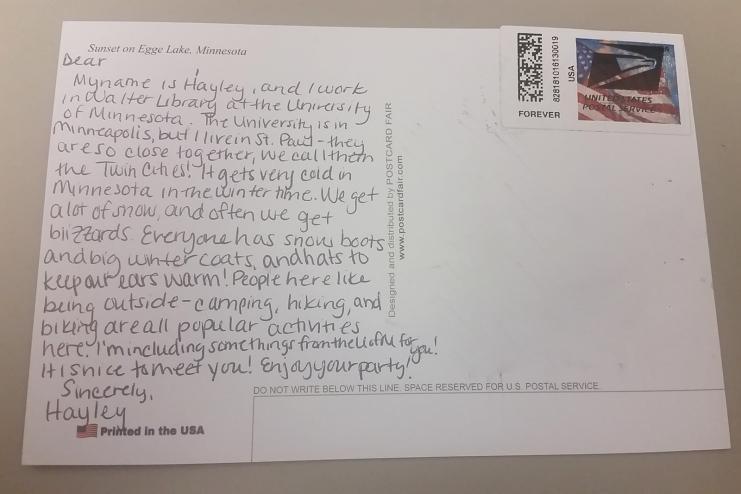 Sunset on Egge Lake, Minnesota
Dear
My name is Hayley, and I work
in Walter Library at the University
of Minnesota. The University is in
Minneapolis, but I live in St. Paul - they
are so close together, we call them
the Twin Cities! It gets very cold in
Minnesota in the winter time. We get
a lot of snow, and often we get
blizzards. Everyone has snow boots
and big winter coats, and hats to
keep our ears warm! People here like
being outside - camping, hiking, and
biking are all popular activities
here. I'm including some things from the U of M for you!
It is nice to meet you! Enjoy your party!
Sincerely,
Hayley
Printed in the USA
Designed and distributed by POSTCARD FAIR
www.postcardfair.com
FOREVER
828181016130019
USA
UNITED STATES
POSTAL SERVICE
DO NOT WRITE BELOW THIS LINE. SPACE RESERVED FOR U.S. POSTAL SERVICE